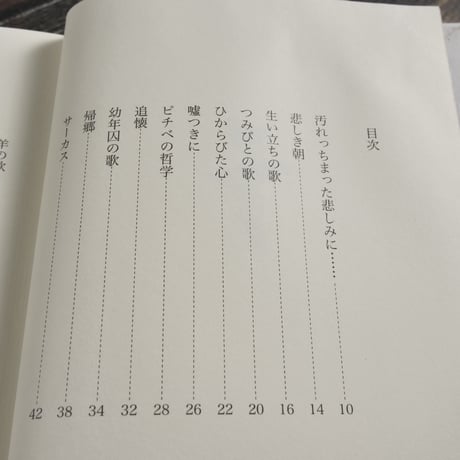 目次
汚れっちまった悲しみに…… 10
悲しき朝 14
生い立ちの歌 16
つみびとの歌 20
ひからびた心 22
嘘つきに 26
ピチベの哲学 28
追懐 32
幼年囚の歌 34
帰郷 38
サーカス 42
羊の歌